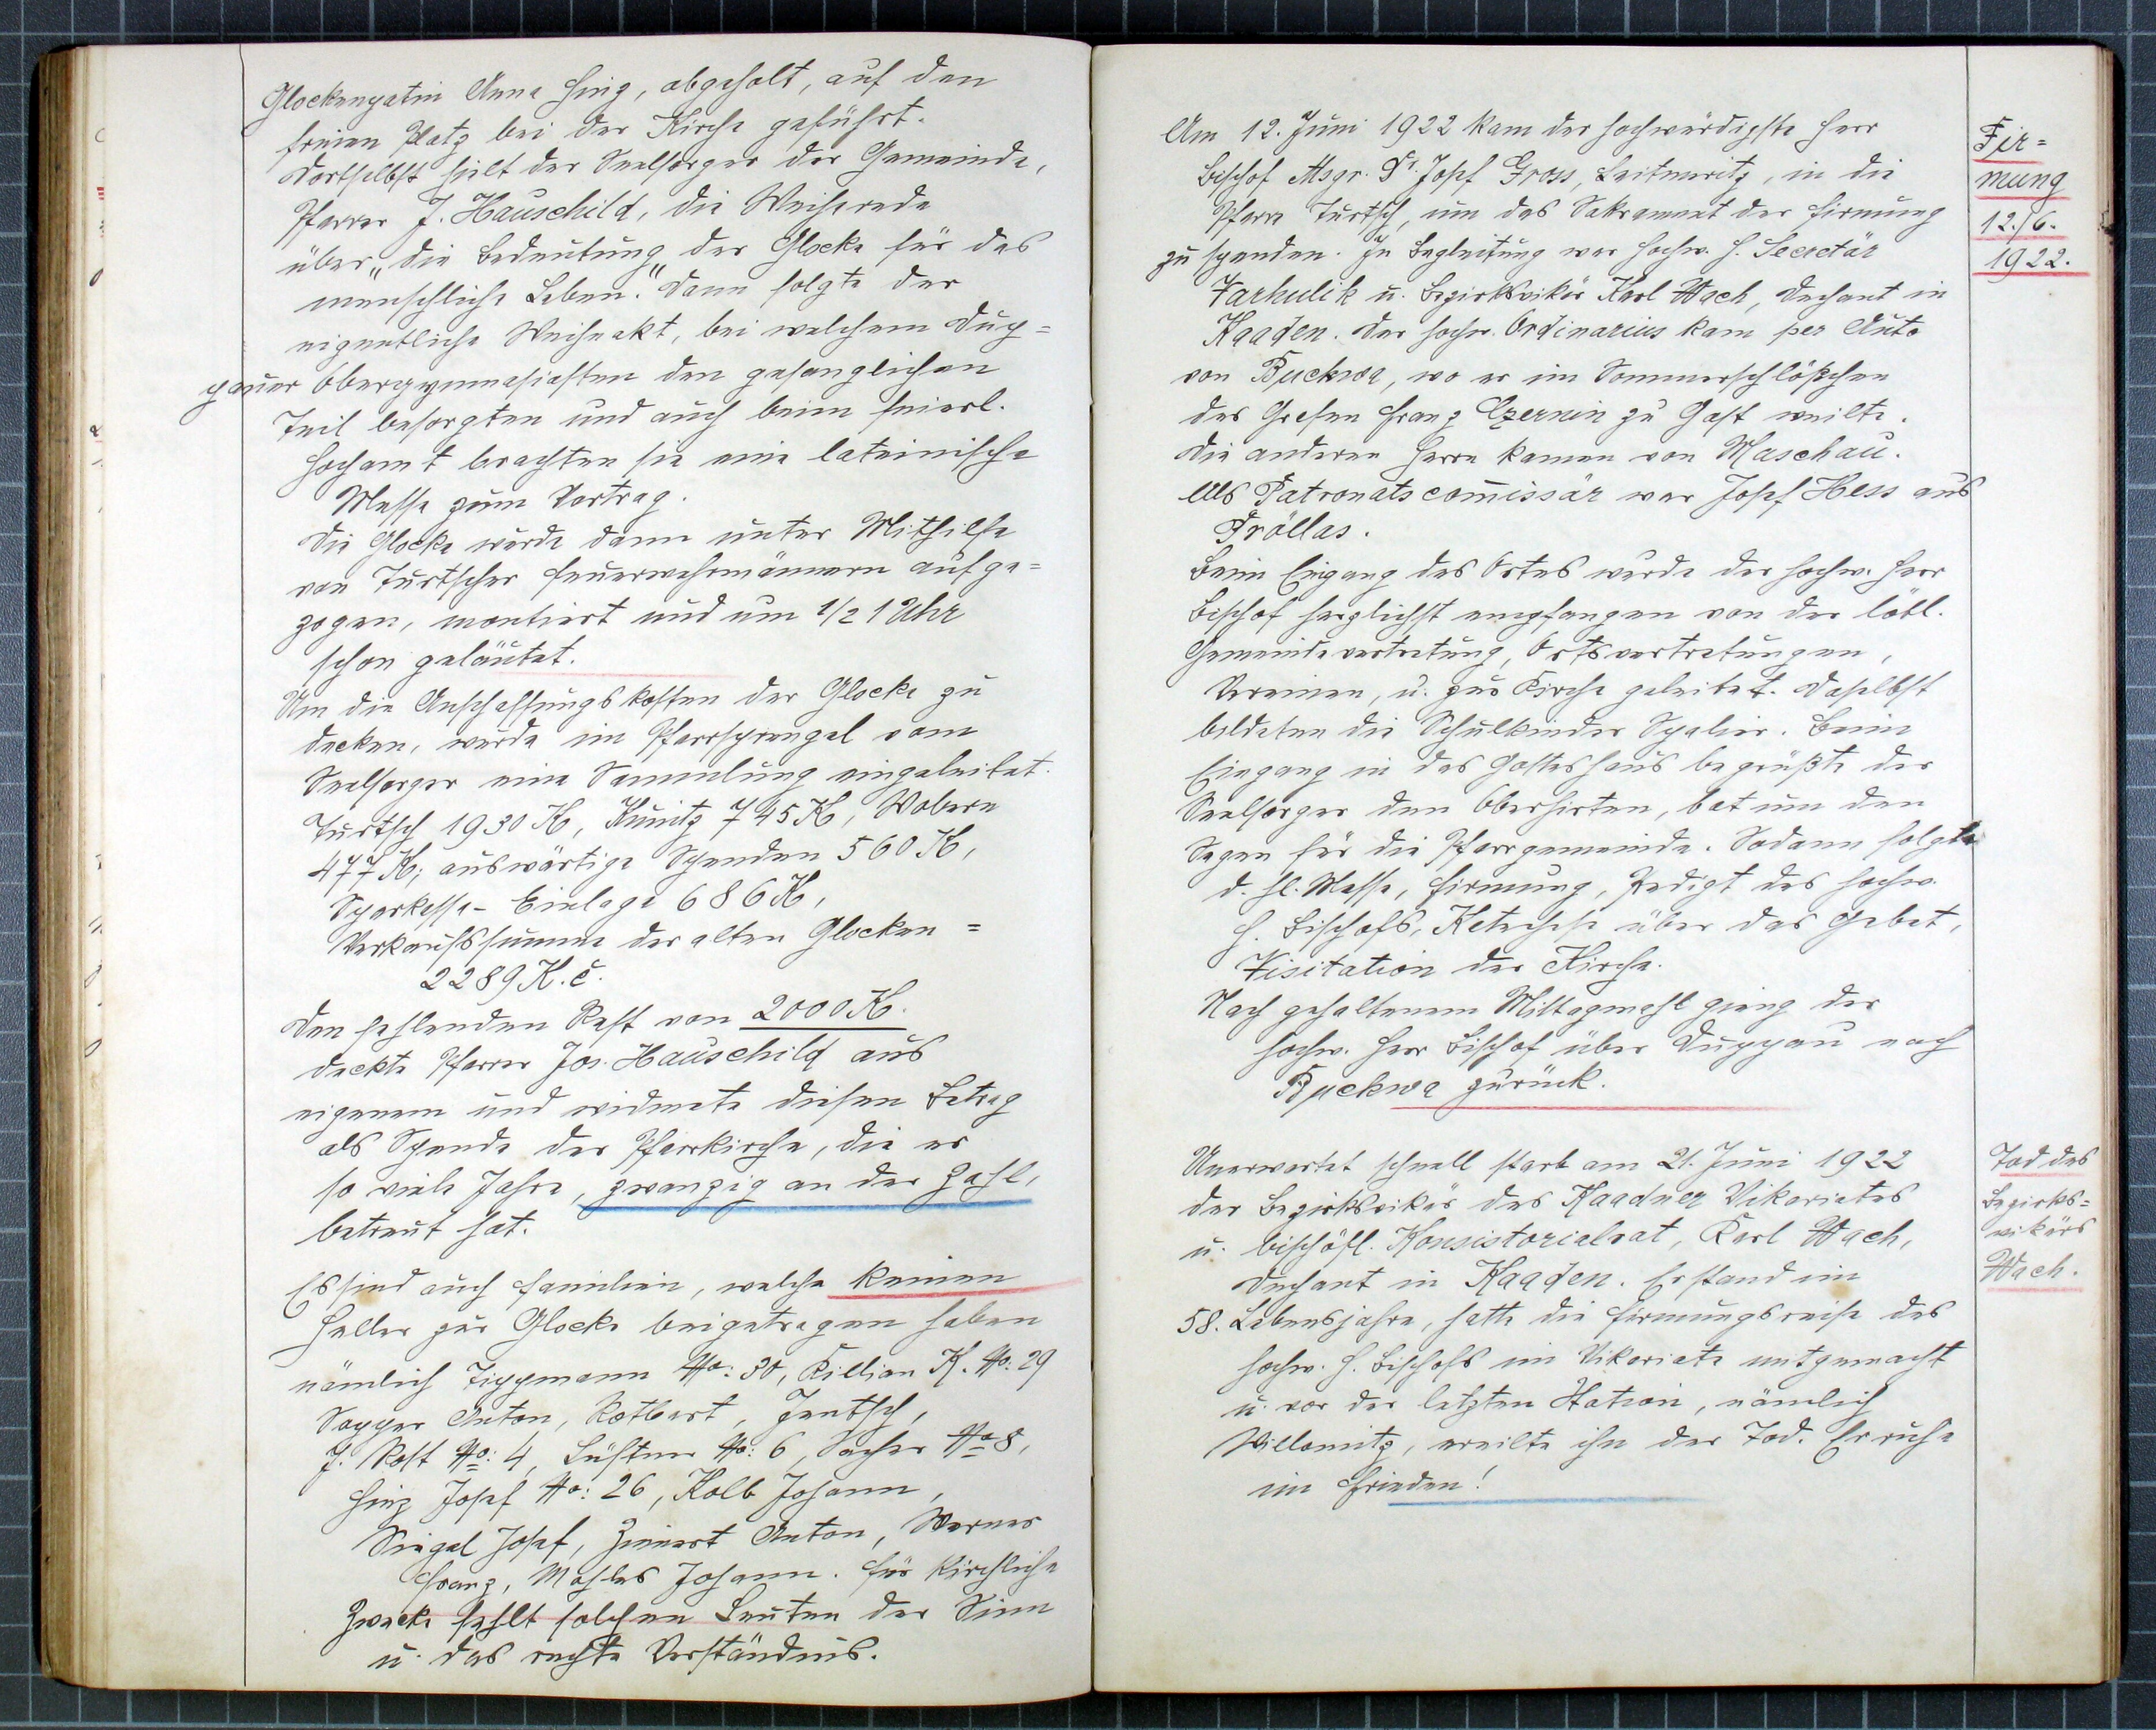 Glockenpatin Anna Hinz, abgeholt, auf den
freien Platz bei der Kirche geführt.
Dortselbst hielt der Seelsorger der Gemeinde,
Pfarrer J. Hauschild, die Weiherede
über „die Bedeutung der Glocke für das
menschliche Leben." Dann folgte der
eigentliche Weiheakt, bei welchem Dup=
pauer Obergymnasiasten den gesanglichen
Teil besorgten und auch beim feierl.
Hochamt brachten sie eine lateinische
Messe zum Vortrag.
Die Glocke wurde dann unter Mithilfe
von Turtscher Feuerwehrmännern aufge=
zogen, montiert und um 1/2 1 Uhr
schon geläutet.
Um die Anschaffungskosten der Glocke zu
decken, wurde im Pfarrsprengel vom
Seelsorger eine Sammlung eingeleitet.
Turtsch 1930 K, Kunitz 745 K, Wobern
477 K, auswärtige Spenden 560 K,
Sparkasse-Einlage 686 K,
Verkaufssumme der alten Glocken =
2289 K.č.
Den fehlenden Rest von 2000 K.
deckte Pfarrer Jos. Hauschild aus
eigenem und widmete diesen Betrag
als Spende der Pfarrkirche, die er
so viele Jahre, zwanzig an der Zahl,
betreut hat.
Es sind auch Familien, welche keinen
Heller zur Glocke beigetragen haben
nämlich Tippmann No: 30, Killian K. No: 29
Sopper Anton, Rottbert, Jentsch,
J. Rost No: 4, Lüftner No: 6, Sacher No 8,
Hinz Josef No: 26, Kolb Johann,
Siegel Josef, Zinnert Anton, Werner
Franz, Mahler Johann. Für kirchliche
Zwecke fehlt solchen Leuten der Sinn
u. das rechte Verständnis.
Am 12. Juni 1922 kam der hochwürdigste Herr
Bischof Msgr. Dr. Josef Gross, Leitmeritz, in die
Pfarre Turtsch, um das Sakrament der Firmung
zu spenden. In Begleitung war hochw. H. Secretär
Varhulik u. Bezirksvikär Karl Wach, Dechant in
Kaaden. Der hochw. Ordinarius kam per Auto
von Buckwa, wo er im Sommerschlößchen
des Grafen Franz Czernin zu Gast weilte.
Die anderen Herrn kamen von Maschau.
Als Patronatscom̄issär war Josef Hess aus
Pröllas.
Beim Eingang des Ortes wurde der hochw. Herr
Bischof herzlichst empfangen von der löbl.
Gemeindevertretung, Ortsvertretungen,
Vereinen, u. zur Kirche geleitet. Daselbst
bildeten die Schulkinder Spalier. Beim
Eingang in das Gotteshaus begrüßte der
Seelsorger den Oberhirten, bat um den
Segen für die Pfarrgemeinde. Sodann folgte
d. hl. Messe, Firmung, Predigt des hochw.
H. Bischofs, Katechese über das Gebet,
Visitation der Kirche.
Nach gehaltenem Mittagmahl gieng der
hochw. Herr Bischof über Duppau nach
Buckwa zurück.
Unerwartet schnell starb am 21. Juni 1922
der Bezirksvikär des Kaadner Vikariates
u. bischöfl. Konsistorialrat, Karl Wach,
Dechant in Kaaden. Er stand im
58. Lebensjahre, hatte die Firmungsreise des
hochw. H. Bischofs im Vikariate mitgemacht
u. vor der letzten Station, nämlich
Willomitz, ereilte ihn der Tod. Er ruhe
im Frieden!
Fir=
mung
12./6.
1922.
Tod des
Bezirks=
vikärs
Wach.